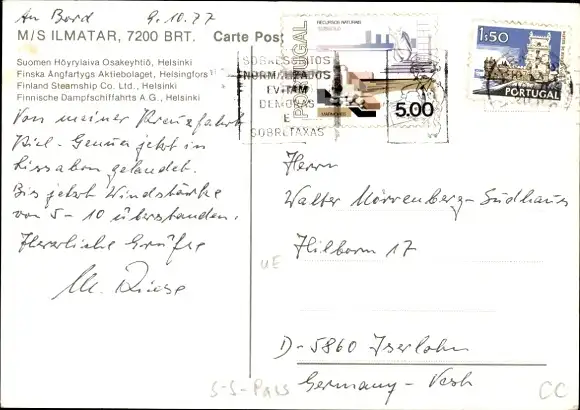 An Bord 9.10.77
M/S ILMATAR, 7200 BRT. Carte Post
Suomen Höyrylaiva Osakeyhtiö, Helsinki
Finska Angfartygs Aktiebolaget, Helsingfors
Finland Steamship Co. Ltd., Helsinki
Finnische Dampfschiffahrts A.G., Helsinki
Von meiner Kreuzfahrt
Kiel-Genua jetzt in
Lissabon gelandet.
Bis jetzt Windstärke
von 5-10 überstanden.
Herzliche Grüße
SOBRESCRITOS
NORMALIZADOS
EVITAM
DEMORAS
E
SOBRETAXAS
RECURSOS NATURAIS
PORTUGAL
5.00
1$50
PORTUGAL
Herrn
Walter Mörrenberg-Südhaus
Hilborn 17
D-5860 Iserlohn
Germany-West
UE
S-S-Pass
CC